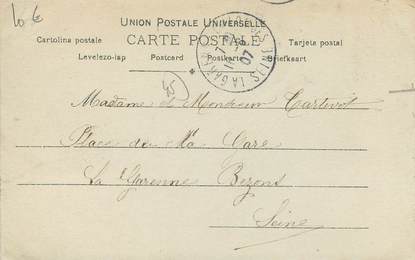 10 €
UNION POSTALE UNIVERSELLE
CARTE POSTALE
Cartolina postale
Tarjeta postal
Levelezo-lap Postcard Postkarte Briefkaart
LA GARENNE SEINE
07
45
Madame et Monsieur
Place de la Gare
La Garenne Bezons
Seine